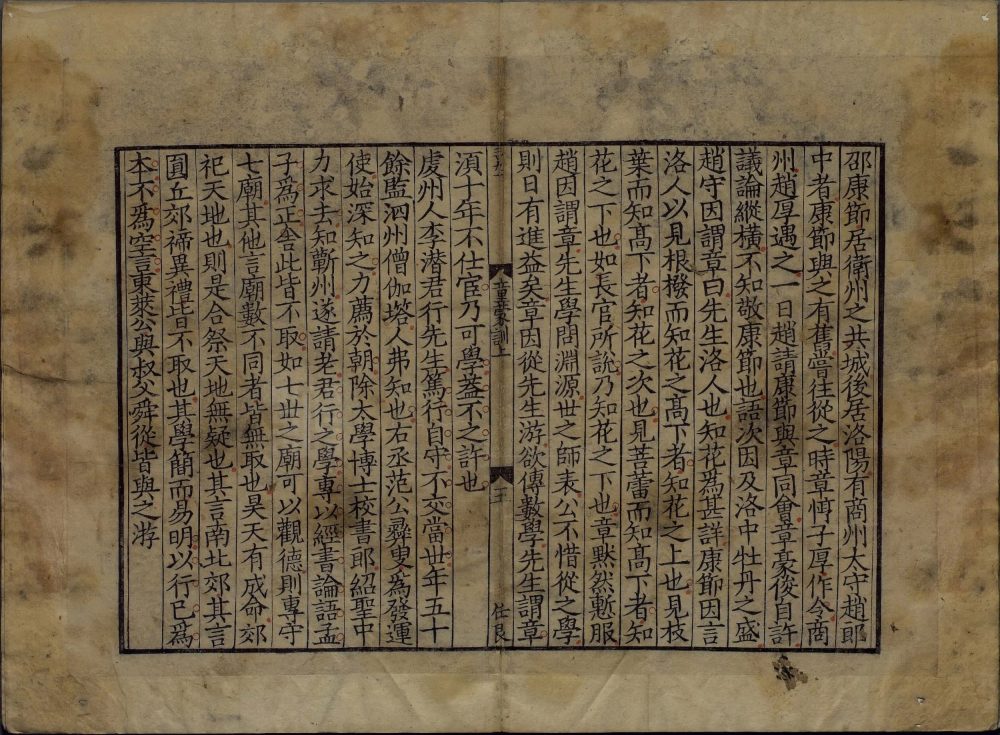 邵康節居衛州之共城後居洛陽有商州太守趙郎
中者康節與之有舊嘗往從之時章惇子厚作令商
州趙厚遇之一日趙請康節與章同會章豪俊自許
議論縱橫不知敬康節也語次因及洛中牡丹之盛
趙守因謂章曰先生洛人也知花為甚詳康節因言
洛人以見根撥而知花之高下者知花之上也見枝
葉而知高下者知花之次也見菩蕾而知高下者知
花之下也如長官所說乃知花之下也章默然慙服
趙因謂章先生學問淵源世之師表公不惜從之學
則日有進益矣章因從先生游欲傳數學先生謂章
湏十年不仕宦乃可學蓋不之許也
童蒙訓上
三
任良
虔州人李潜君行先生篤行自守不交當世年五十
餘監泗州僧伽塔人弗知也右丞范公彛叟為發運
使始深知之力薦於朝除太學博士校書郎紹聖中
力求去知蘄州遂請老君行之學專以經書論語孟
子為正舍此皆不取如七世之廟可以觀德則專守
七廟其他言廟數不同者皆無取也昊天有成命郊
祀天地也則是合祭天地無疑也其言南北郊其言
圓丘郊禘異禮皆不取也其學簡而易明以行己為
本不為空言東萊公與叔父舜從皆與之游